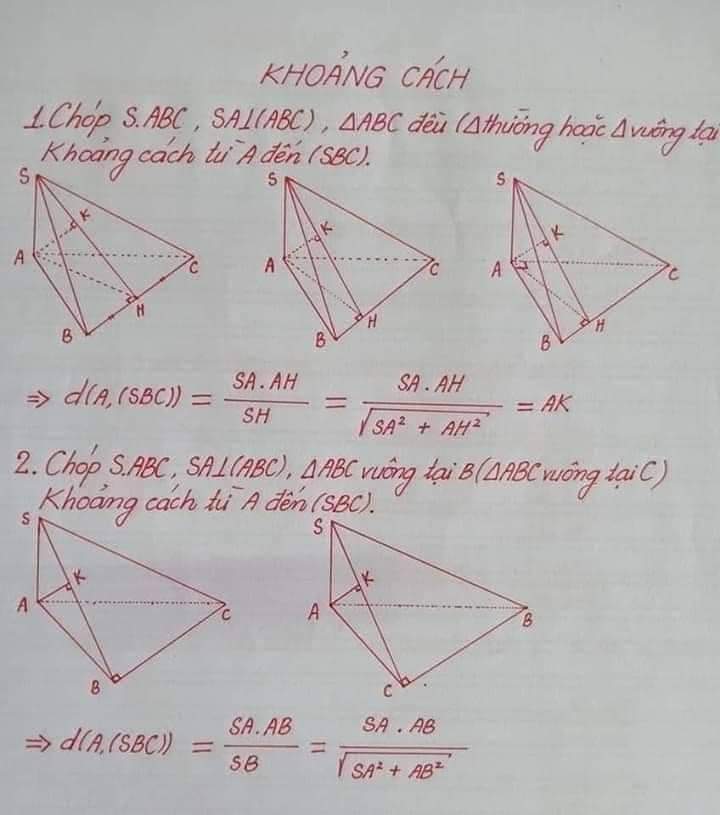 KHOẢNG CÁCH
1. Chóp S.ABC, SA⊥(ABC), ΔABC đều (Δ thường hoặc Δ vuông tại
Khoảng cách từ A đến (SBC).
S K A C H B
S K A C H B
S K A C H B
⇒ d(A,(SBC)) = SA.AH / SH = SA.AH / √(SA² + AH²) = AK
2. Chóp S.ABC, SA⊥(ABC), ΔABC vuông tại B (ΔABC vuông tại C)
Khoảng cách từ A đến (SBC).
S K A C B
S K A B C
⇒ d(A,(SBC)) = SA.AB / SB = SA.AB / √(SA² + AB²)